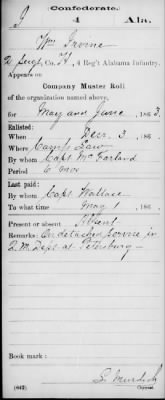 Confederate.
I 4 Ala.
Wm Irvine
2 Sergt, Co. H, 4 Reg't Alabama Infantry.
Appears on
Company Muster Roll
of the organization named above,
for May and June, 186 3.
Enlisted:
When Dec. 3, 186
Where Camp Law
By whom Capt McFarland
Period 6 mos
Last paid:
By whom Capt Wallace
To what time May 1, 186
Present or absent Absent
Remarks: On detached service in
Q.M. Dept at Petersburg
Book mark:
S. Murdick
(642) Copyist.